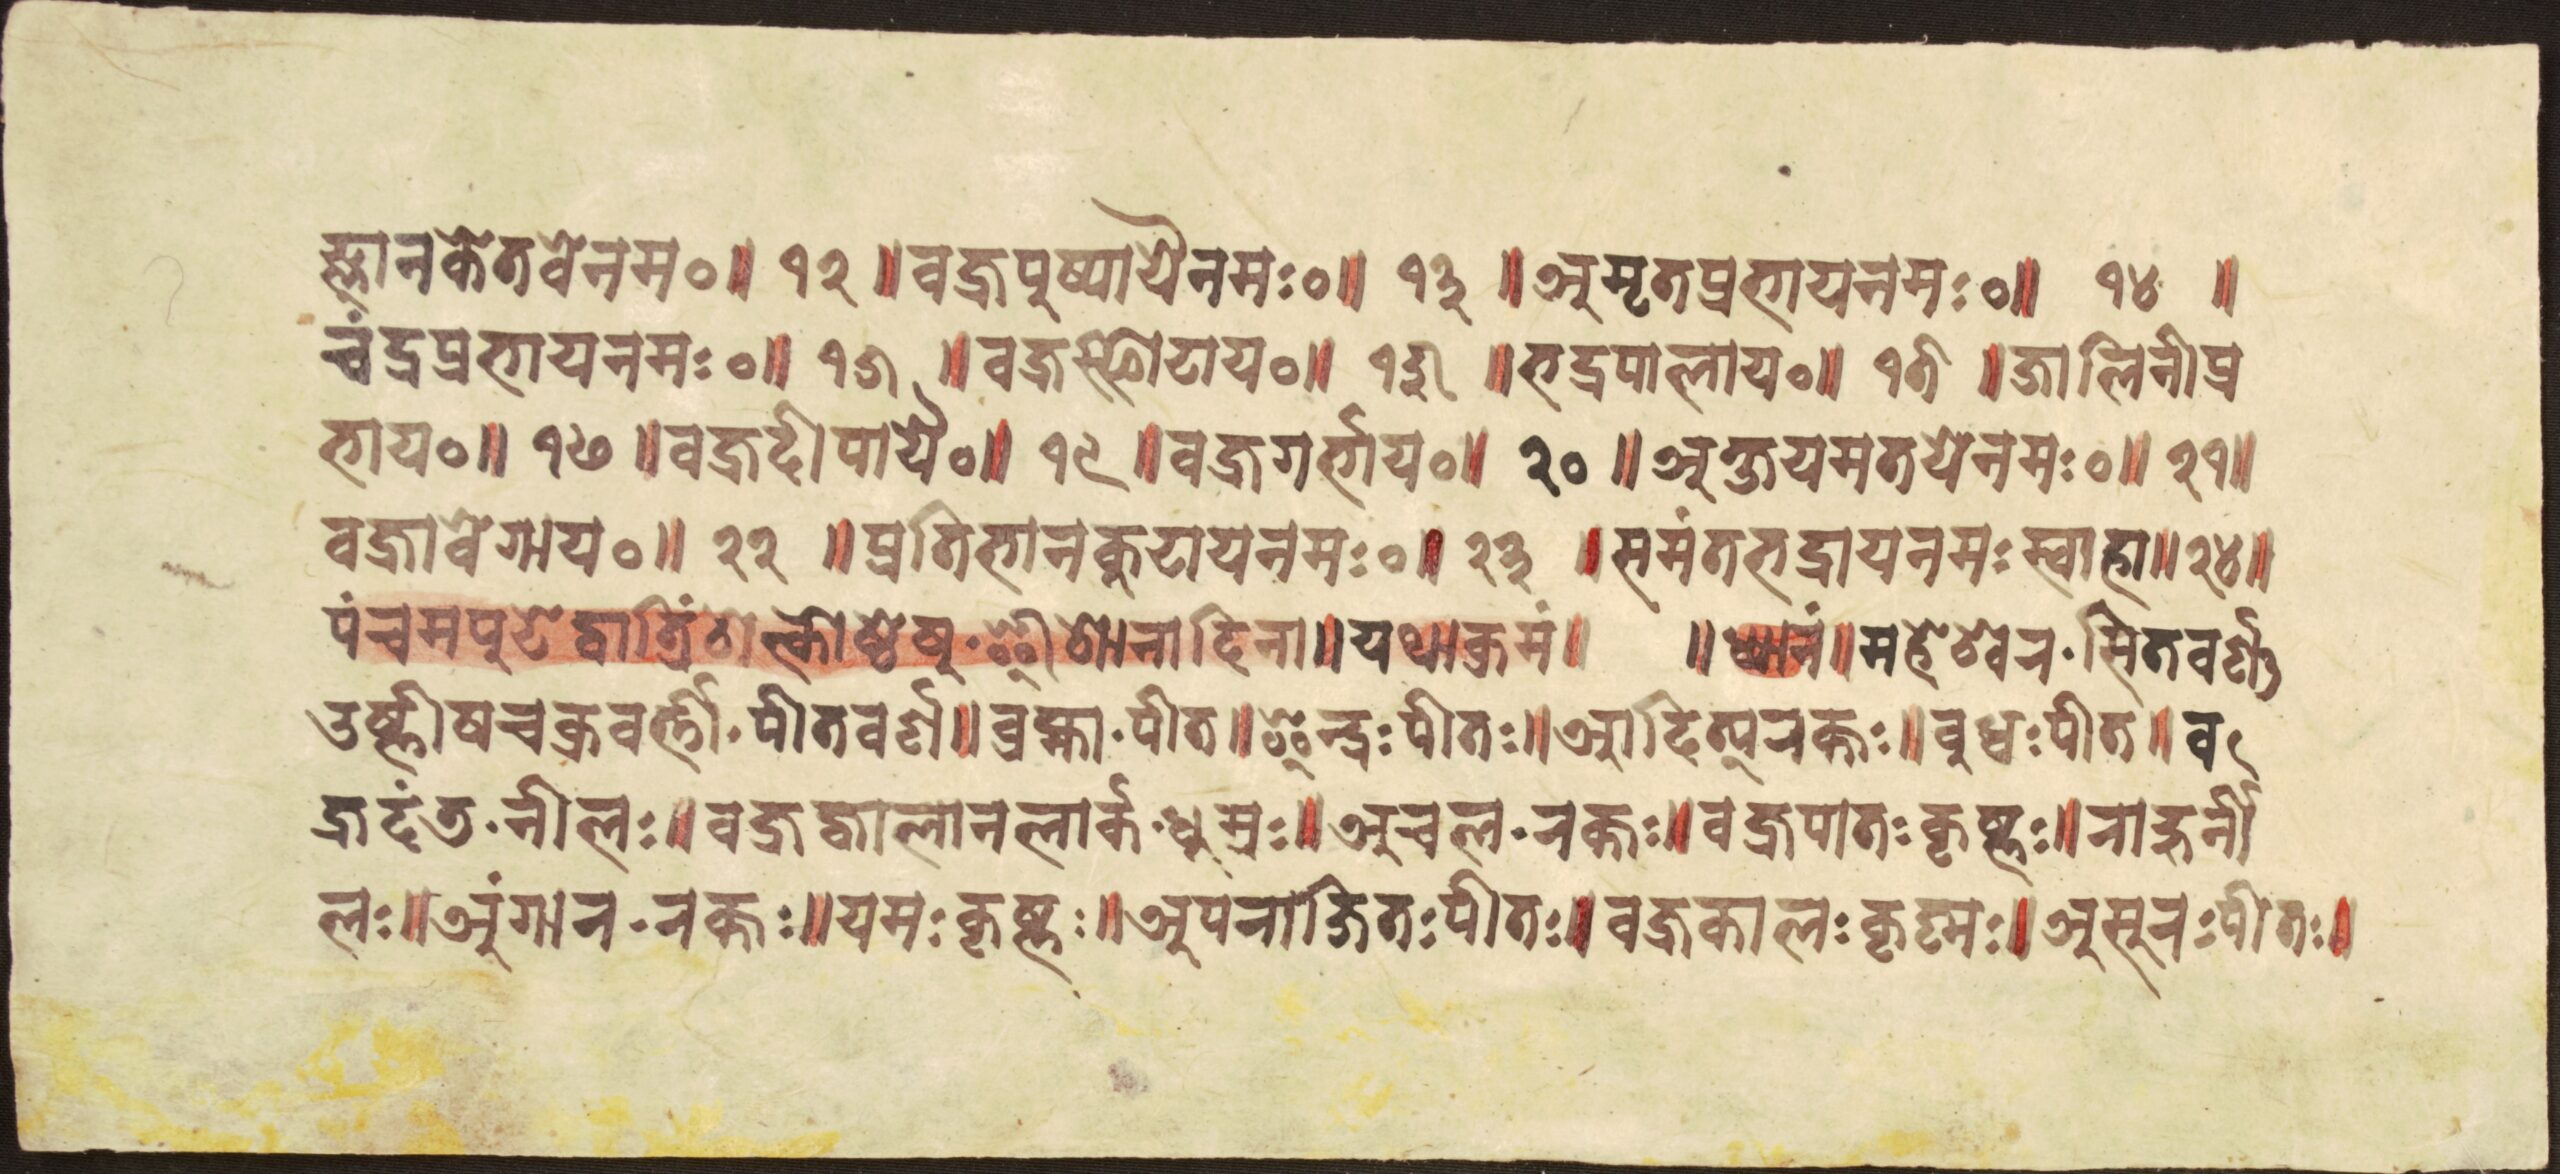 ज्ञानकेतवेनम॰॥ १२ ॥वज्रपुष्पायैनमः॰॥ १३ ॥अमृतप्रभायनमः॰॥ १४ ॥
चंद्रप्रभायनमः॰॥ १५ ॥वज्रस्फोटाय॰॥ १६ ॥भद्रपालाय॰॥ १७ ॥जालिनीप्र
भाय॰॥ १८ ॥वज्रदीपायै॰॥ १९ ॥वज्रगर्भाय॰॥ २० ॥अक्षयमतयेनमः॰॥ २१॥
वज्रावेशाय॰॥ २२ ॥प्रतिभानकुटायनमः॰॥ २३ ॥समंतभद्रायनमःस्वाहा॥२४॥
पंचमपुटेद्वात्रिंशत्कोष्ठेषु·ईशानादिना॥यथाक्रमं॥ ॥ध्यानं॥महेश्वर·सितवर्ण
उर्ष्णीषचक्रवर्त्ती·पीतवर्ण॥ब्रह्मा·पीत॥इन्द्रःपीतः॥आदित्यरक्तः॥बुधःपीत॥व
ज्रदंत·नीलः॥वज्रज्वालानलार्क·धुम्रः॥अचल·रक्तः॥वज्रपातःकृष्णः॥राहुर्नी
लः॥अंगार·रक्तः॥यमःकृष्णः॥अपराजितःपीतः॥वज्रकालःकृष्णः॥असुरःपीतः॥